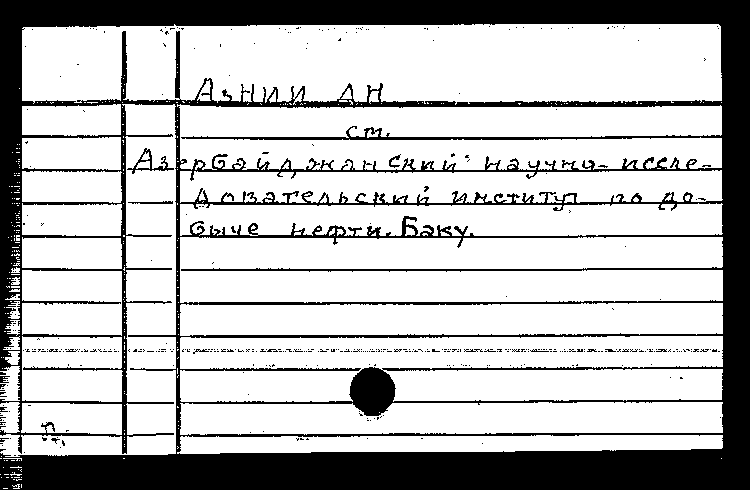 АзНИИ ДН
ст.
Азербайджанский научно-иссле-
довательский институт по до-
быче нефти. Баку.